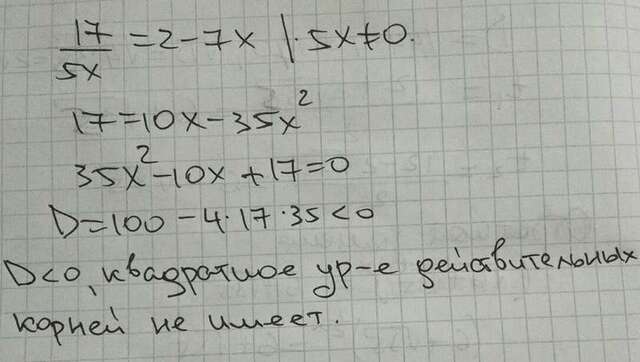 17/5x = 2 - 7x |· 5x ≠ 0.
17 = 10x - 35x²
35x² - 10x + 17 = 0
D = 100 - 4·17·35 < 0
D < 0, квадратное ур-е действительных
корней не имеет.